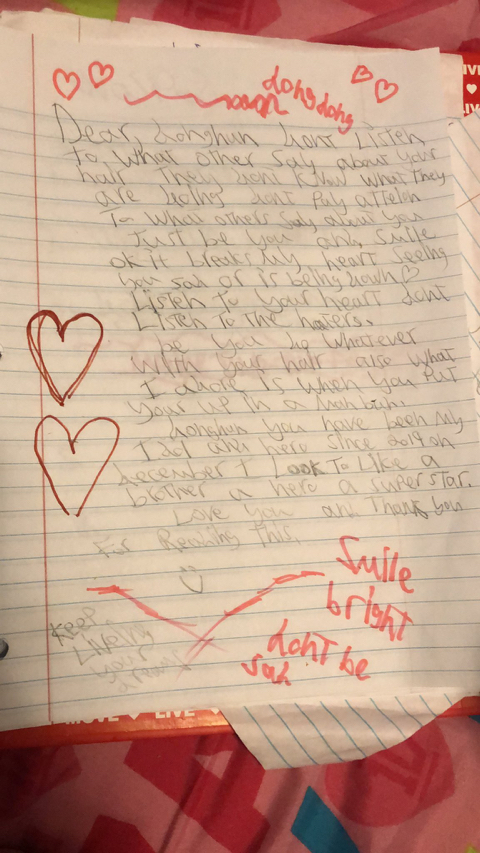 dong dong
Dear, donghun dont Listen
To what other say about your
hair They dont know what They
are doing dont Pay
To what others say about you
Just be you and smile
ok it breaks My heart seeing
you sad or is being down
Listen to your heart dont
Listen To the haters.
be you do whatever
with your hair also what
I adore is when you PUT
your up in a
donghun you have been My
and hero since 2019 on
december I Look To Like a
brother a hero a super star.
Love you and Thank you
For Reading This.
Smile
bright
dont be
sad
Keep
your
MOVE LIVE